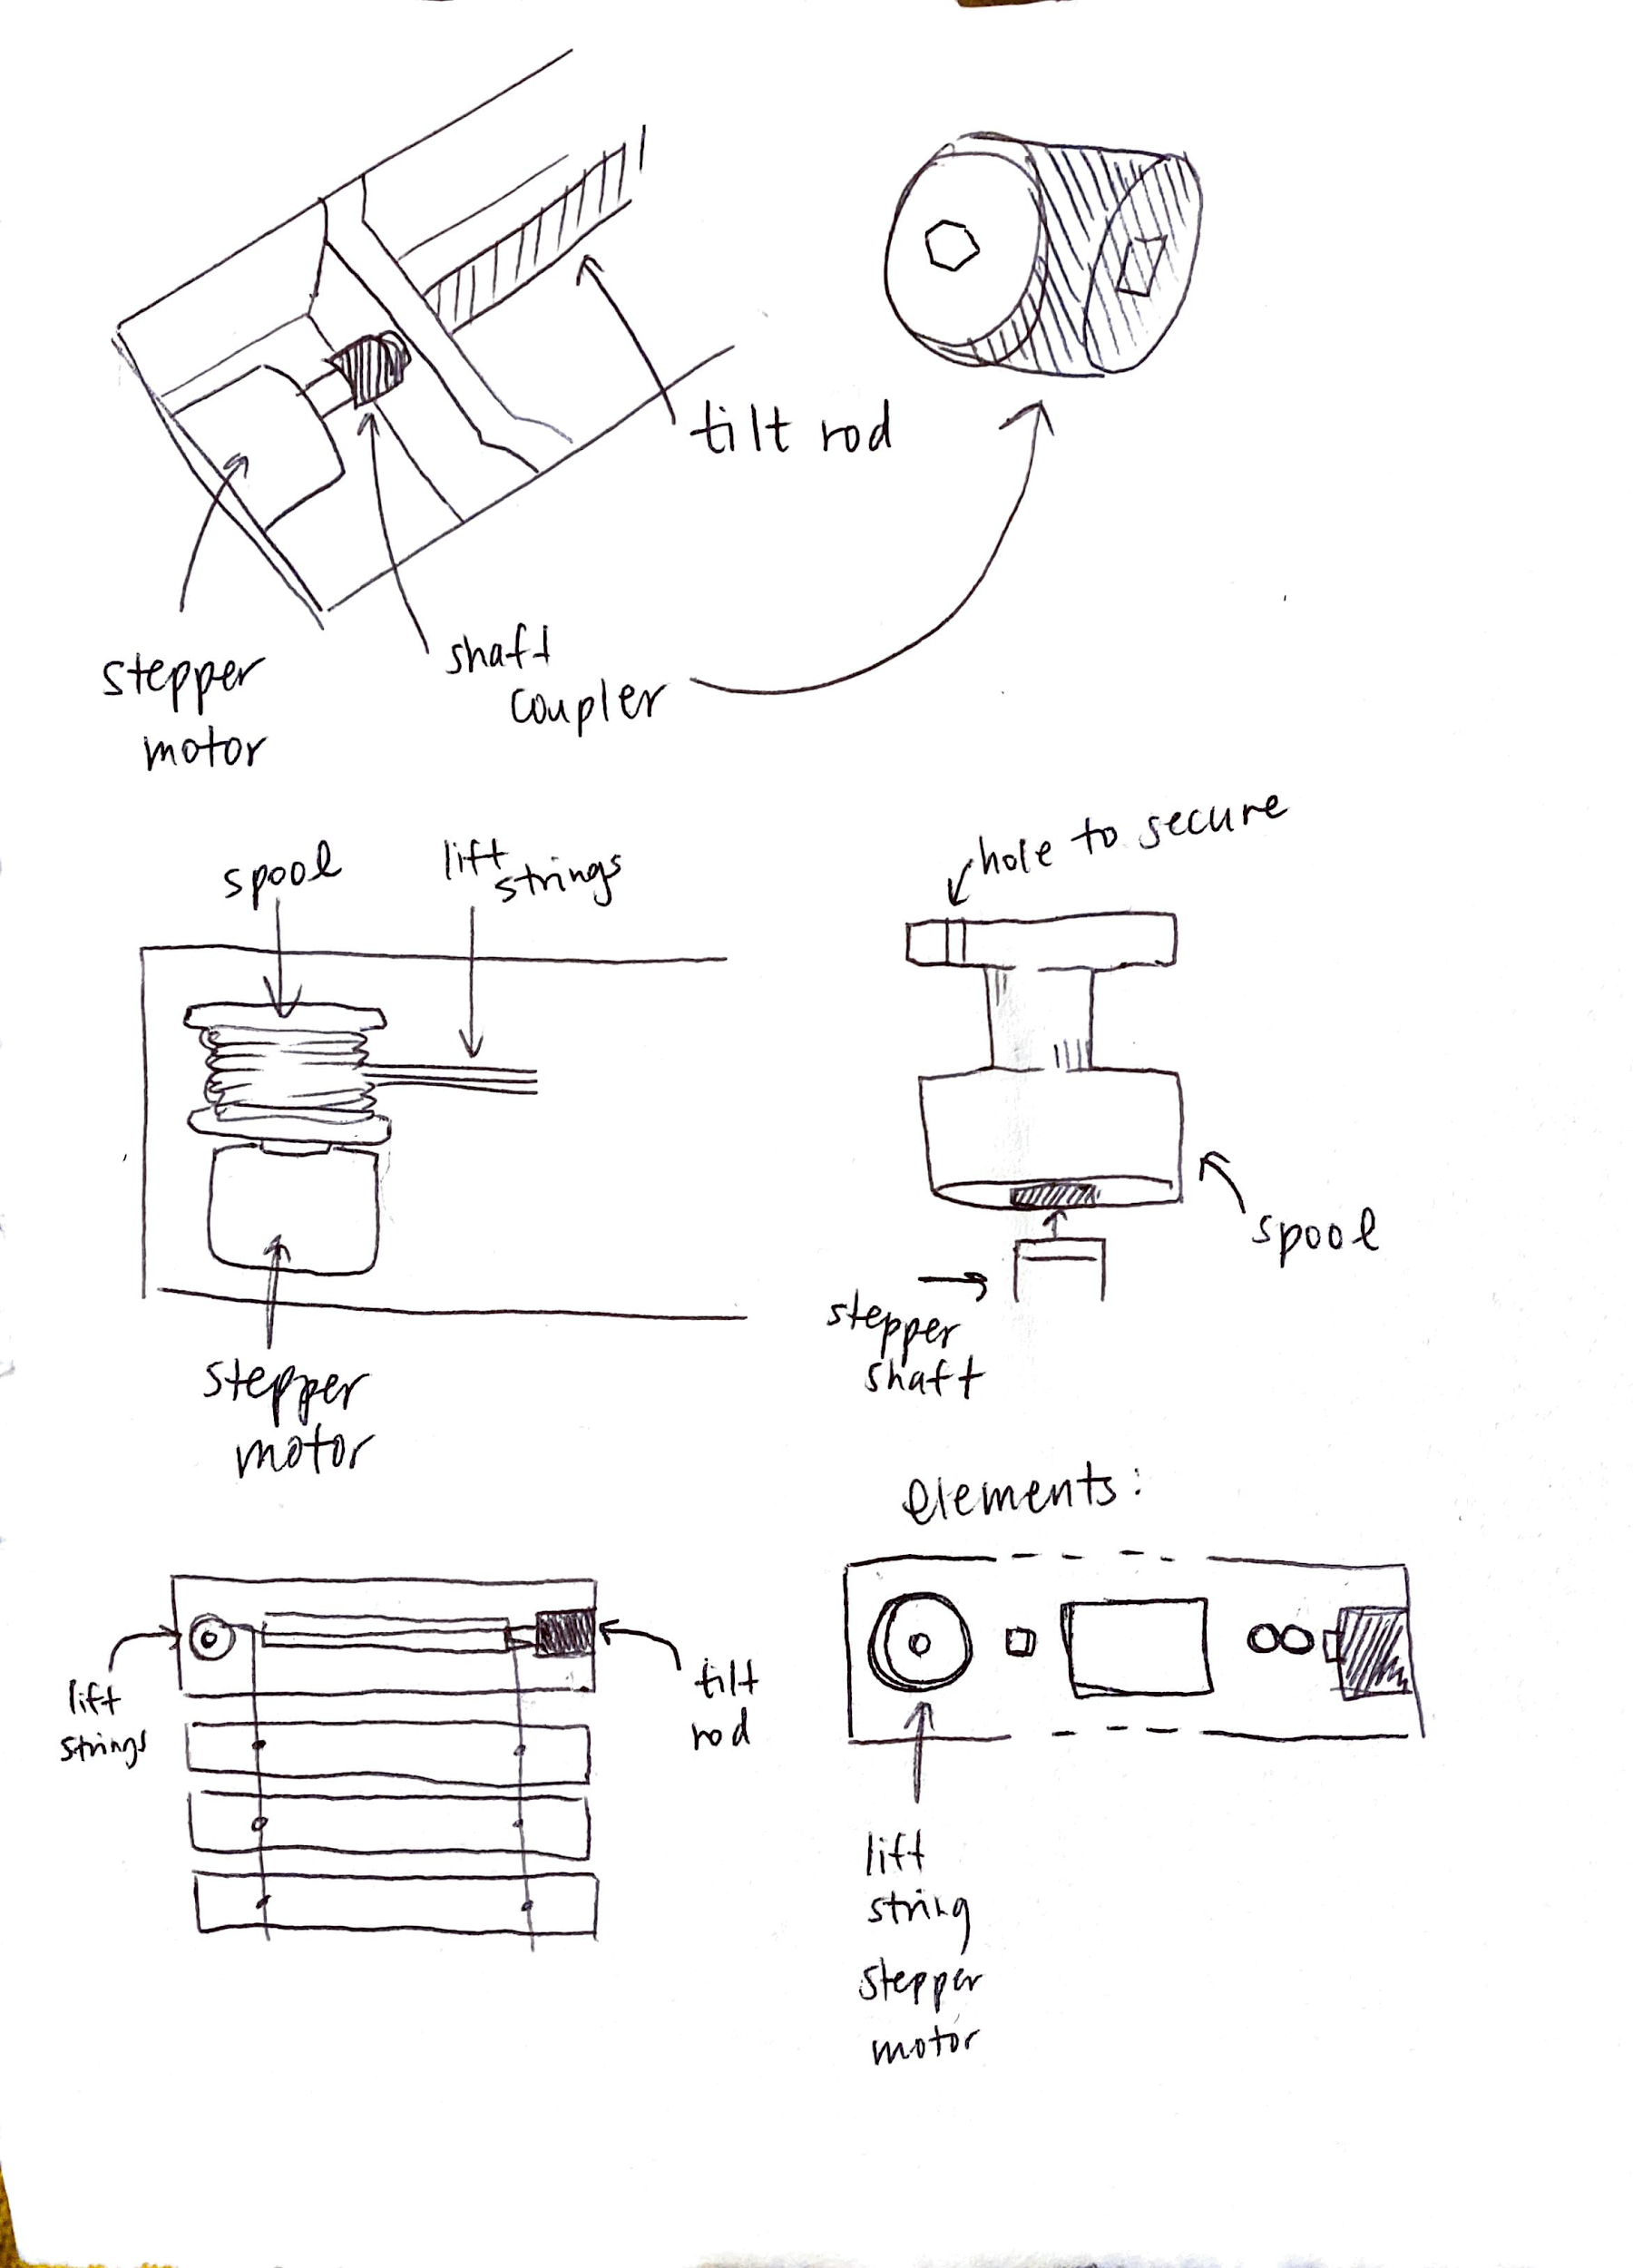 tilt rod
stepper
motor
shaft
coupler
spool
lift
strings
hole to secure
stepper
motor
spool
stepper
shaft
elements:
lift
strings
tilt
rod
lift
string
stepper
motor